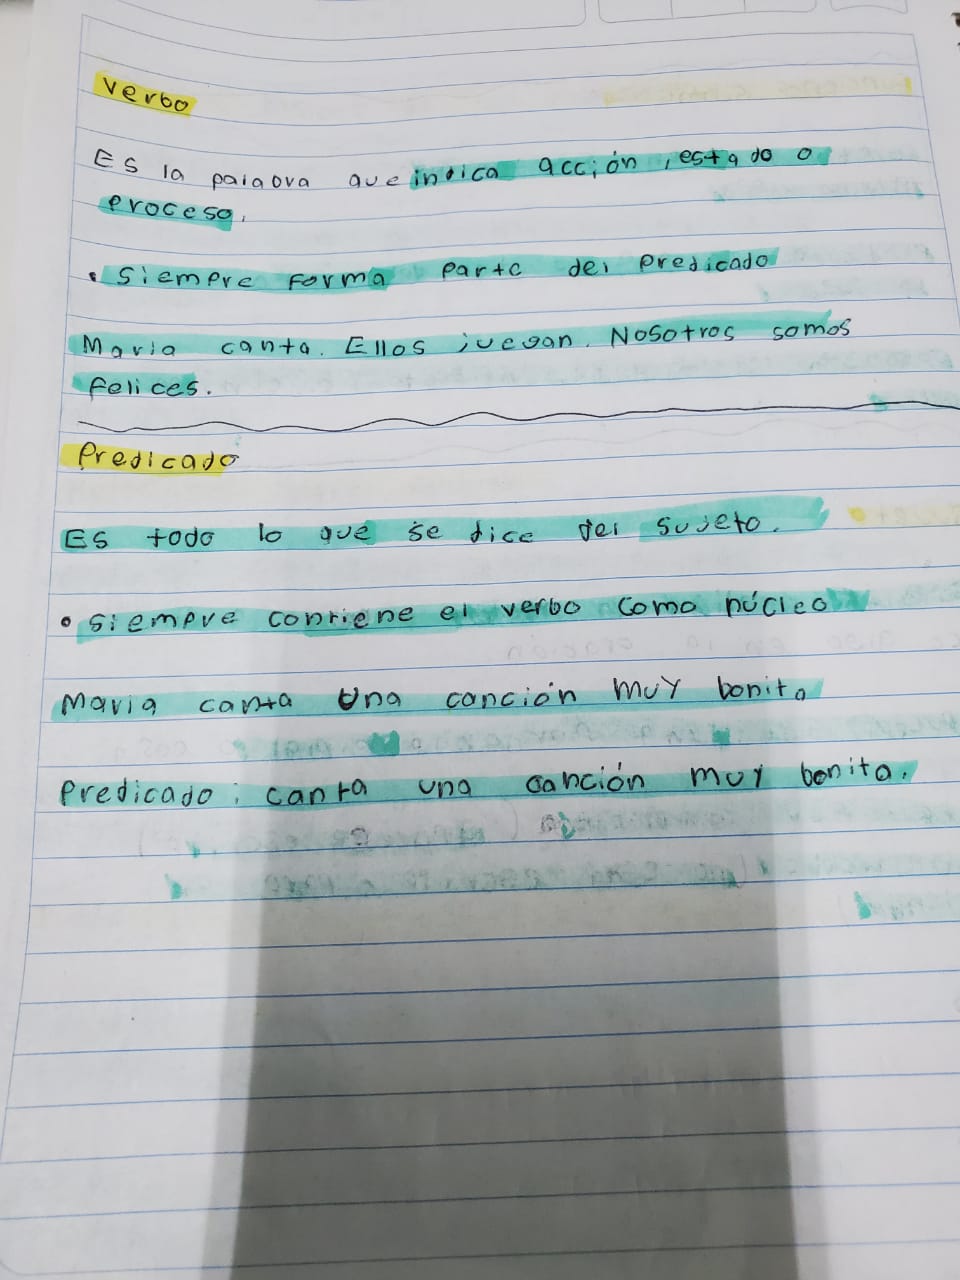 Verbo
Es la palabra que indica acción, estado o
proceso.
• Siempre forma parte del predicado
Maria canta. Ellos juegan. Nosotros somos
felices.
Predicado
Es todo lo que se dice del sujeto.
• Siempre contiene el verbo como núcleo
Maria canta una canción muy bonita
Predicado: canta una canción muy bonita.